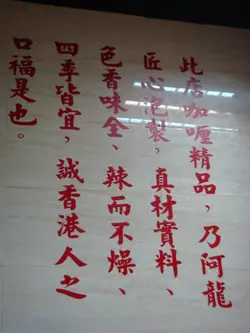 此店咖喱精品，乃阿龍
匠心泡製，真材實料、
色香味全、辣而不燥、
四季皆宜，誠香港人之
口福是也。